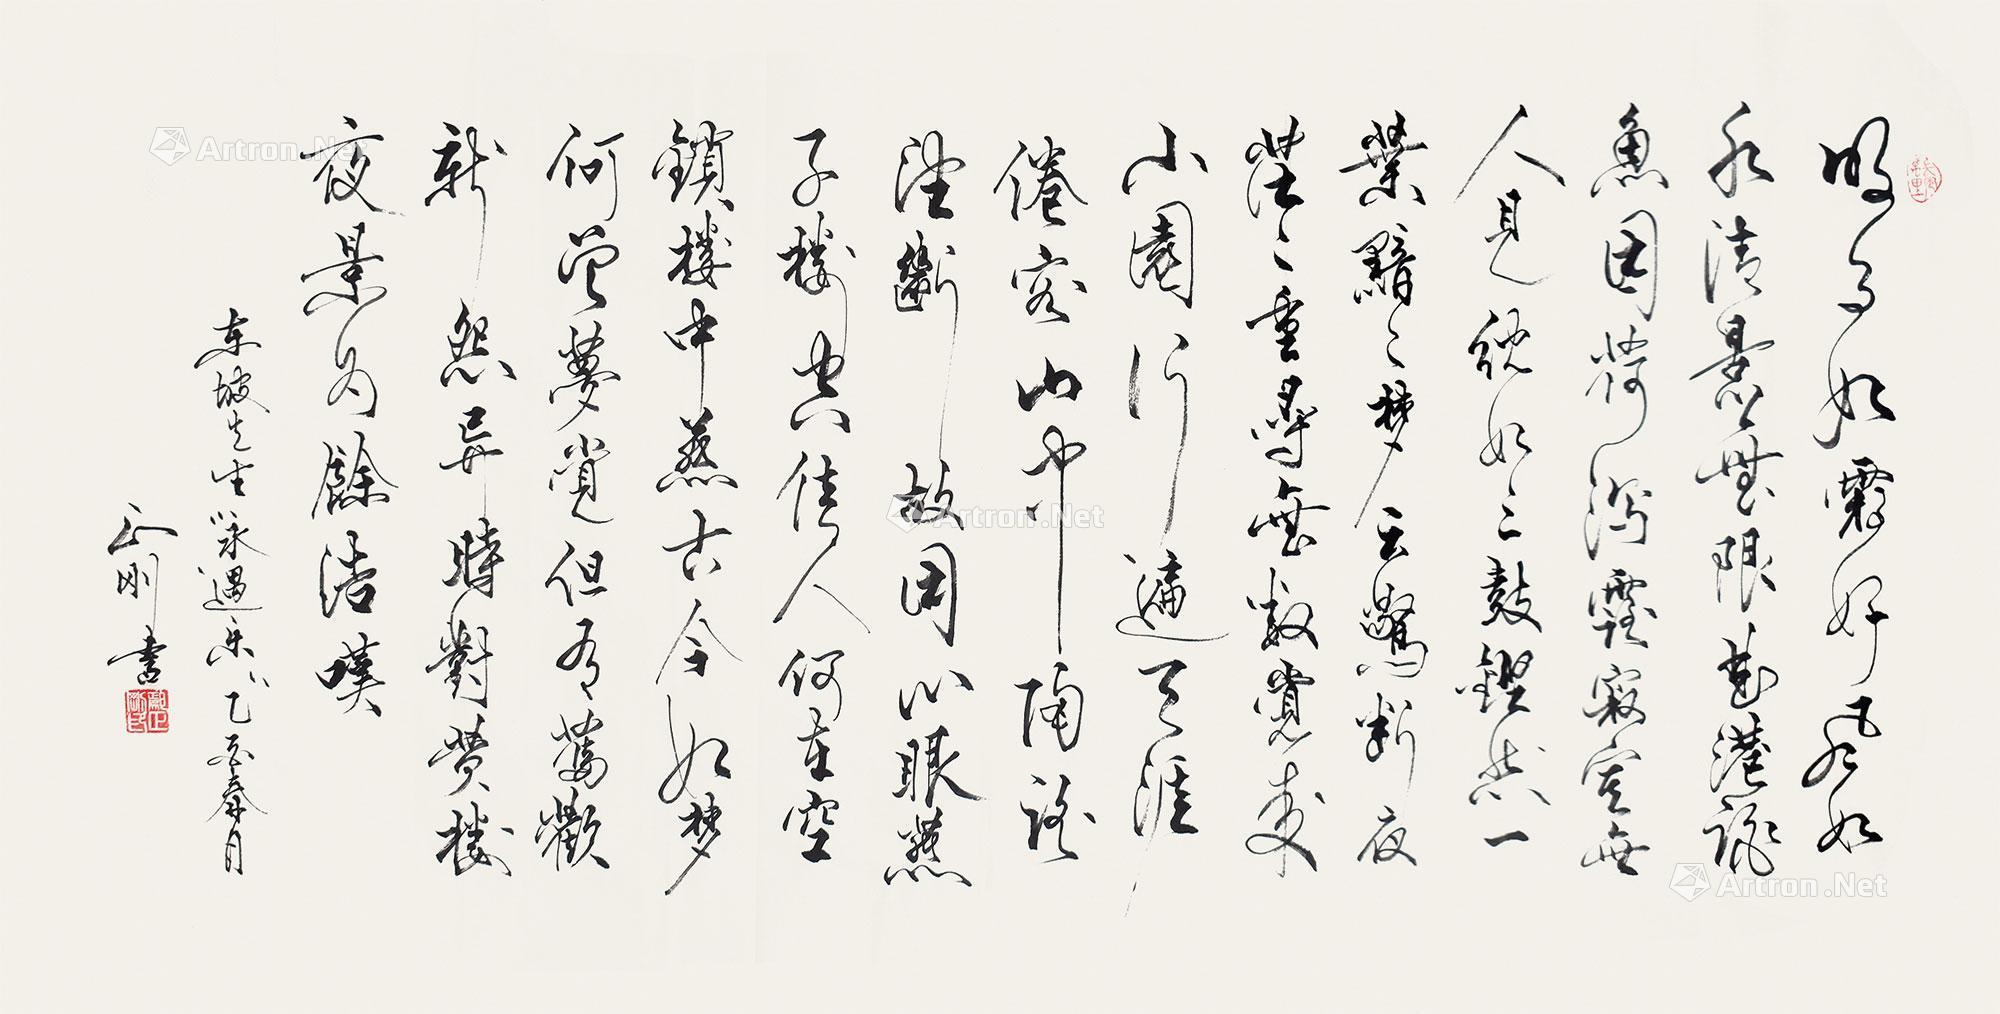 明月如霜好風如
水清景無限曲港跳
魚圓荷瀉露寂寞無
人見紞如三鼓鏗然一
葉黯〻梦云驚断夜
茫〻重尋無覺来
小園行遍天涯
倦客山中歸路
望斷故園心眼燕
子樓空佳人何在空
鎖楼中燕古今如梦
何曾夢覺但有舊歡
新怨異時對黄楼
夜景為餘浩嘆
东坡先生詠遇乐 乙春月
正刚書
Artron.Net
Artron.Net
Artron.Net
Artron.Net